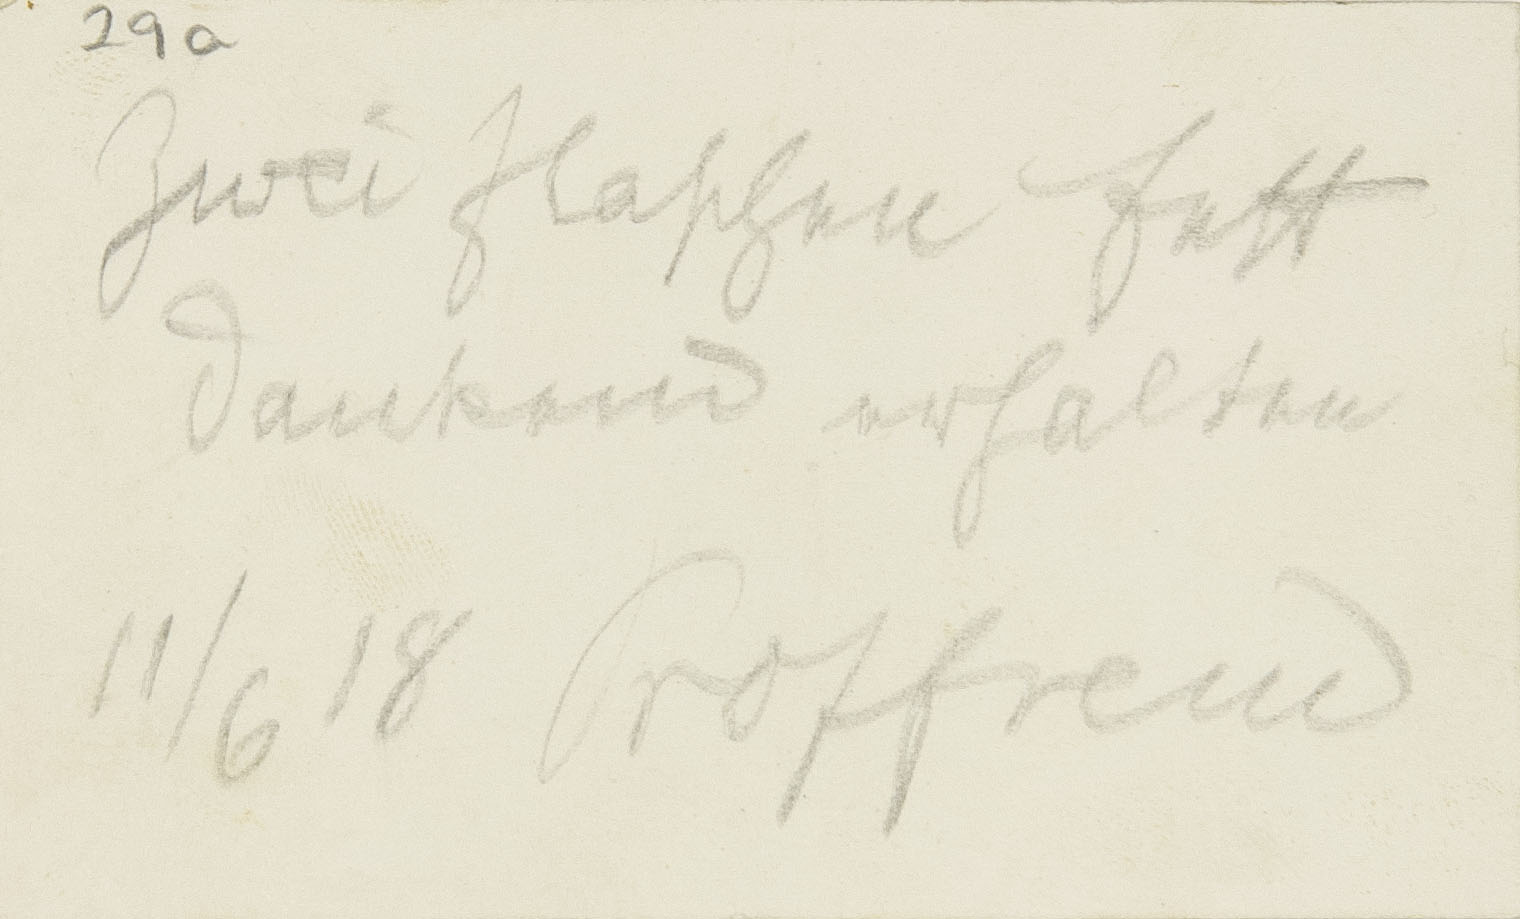 29a
Zwei Flaschen Fett
dankend erhalten
11/6 18 Prof Freud